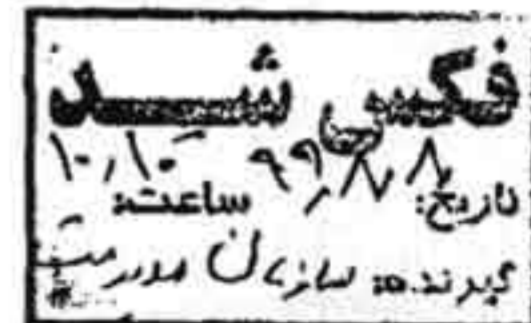 فکس شد
تاریخ: ۹۹/۷/۸ ساعت: ۱۰/۱۰
گیرنده: سازمان مدیریت